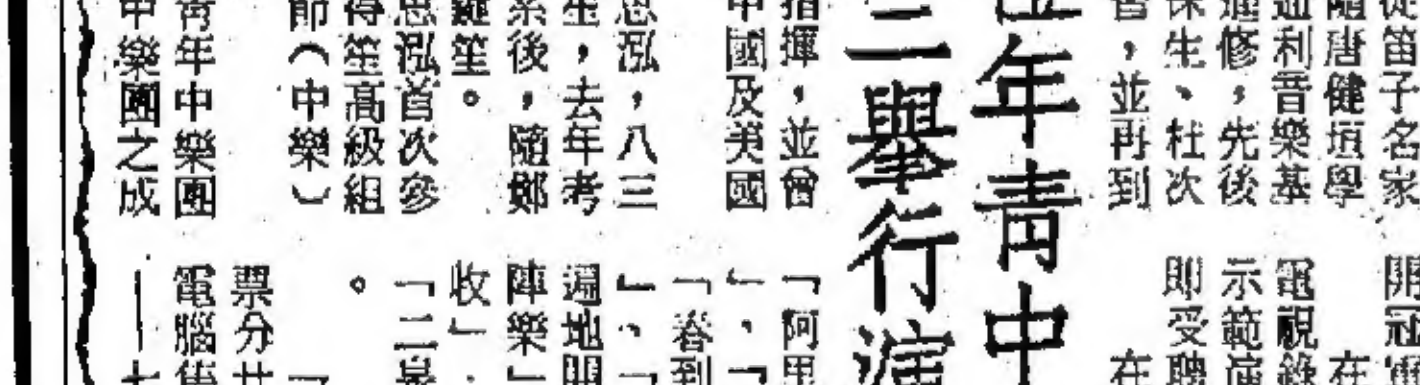 從笛子名家
隨唐健垣學
通利音樂基
進修，先後
保生、杜次
，並再到
開冠軍
在
電視錄
示範演
即受聘
在
年青中
三舉行演
指揮，並曾
中國及美國
思泓，八三
生，去年考
系後，隨鄭
笙。
思泓首次參
得笙高級組
節（中樂）
青年中樂團
中樂團之成
「阿里
」，「
「春到
」、「
遍地開
陣樂」
收」
「二泉
。
票分廿
電腦售
——七